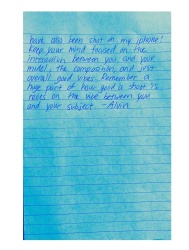 have also been shot on my iphone!
Keep your mind focused on the
interaction between you and your
model, the composition, and just
overall good vibes. Remember a
huge part of how good a shoot is
relies on the vibe between you
and your subject. -Alvin